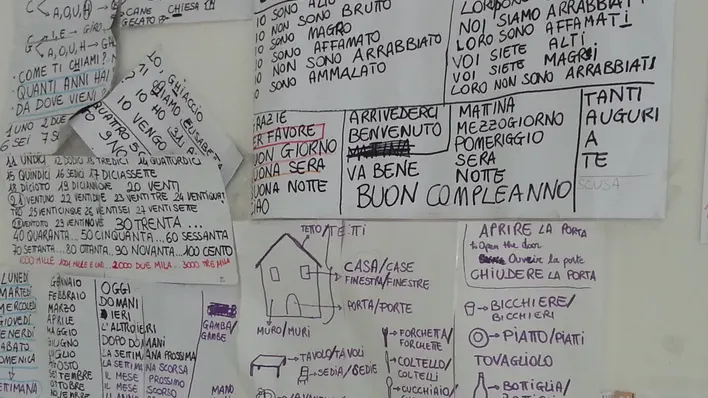 C
A,O,U
C
I,E→GIRO
A,O,U,H
COME TI CHIAMI?
QUANTI ANNI HAI
DA DOVE VIENI?
1 UNO 2 DUE
6 SEI 7
CANE CHIESA
GELATO
GHIACCIO
SIAMO ELISABETTA
IO HO
IO VENGO
QUATTRO 5
IO SONO ALTO
IO NON SONO BRUTTO
IO SONO MAGRO
IO SONO AFFAMATO
IO NON SONO ARRABBIATO
IO SONO AMMALATO
LORO SONO
NOI SIAMO ARRABBIATI
LORO SONO AFFAMATI
VOI SIETE ALTI
VOI SIETE MAGRI
LORO NON SONO ARRABBIATI
GRAZIE
PER FAVORE
BUON GIORNO
BUONA SERA
BUONA NOTTE
CIAO
ARRIVEDERCI
BENVENUTO
VA BENE
BUON COMPLEANNO
MATTINA
MEZZOGIORNO
POMERIGGIO
SERA
NOTTE
TANTI
AUGURI
A
TE
SCUSA
11 UNDICI 12 DODICI 13 TREDICI 14 QUATTORDICI
15 QUINDICI 16 SEDICI 17 DICIASSETTE
18 DICIOTTO 19 DICIANNOVE 20 VENTI
21 VENTUNO 22 VENTIDUE 23 VENTI TRE 24 VENTIQUATTRO
25 VENTICINQUE 26 VENTISEI 27 VENTI SETTE
28 VENTOTTO 29 VENTINOVE 30 TRENTA...
40 QUARANTA...50 CINQUANTA...60 SESSANTA
70 SETTANTA...80 OTTANTA...90 NOVANTA...100 CENTO
1000 MILLE 1001 MILLE E UNO...2000 DUE MILA...3000 TRE MILA
LUNEDÍ
MARTEDÍ
MERCOLEDÍ
GIOVEDÍ
VENERDÍ
SABATO
DOMENICA
SETTIMANA
GENNAIO
FEBBRAIO
MARZO
APRILE
MAGGIO
GIUGNO
LUGLIO
AGOSTO
SETTEMBRE
OTTOBRE
NOVEMBRE
OGGI
DOMANI
IERI
L'ALTROIERI
DOPO DOMANI
LA SETTIMANA PROSSIMA
LA SETTIMANA SCORSA
IL MESE PROSSIMO
IL MESE SCORSO
GAMBA/
GAMBE
MANO
TETTO/TETTI
CASA/CASE
FINESTRA/FINESTRE
PORTA/PORTE
MURO/MURI
TAVOLO/TAVOLI
SEDIA/SEDIE
FORCHETTA/
FORCHETTE
COLTELLO/
COLTELLI
CUCCHIAIO/
APRIRE LA PORTA
To Open the door
Ouvrir la porte
CHIUDERE LA PORTA
BICCHIERE/
BICCHIERI
PIATTO/PIATTI
TOVAGLIOLO
BOTTIGLIA/